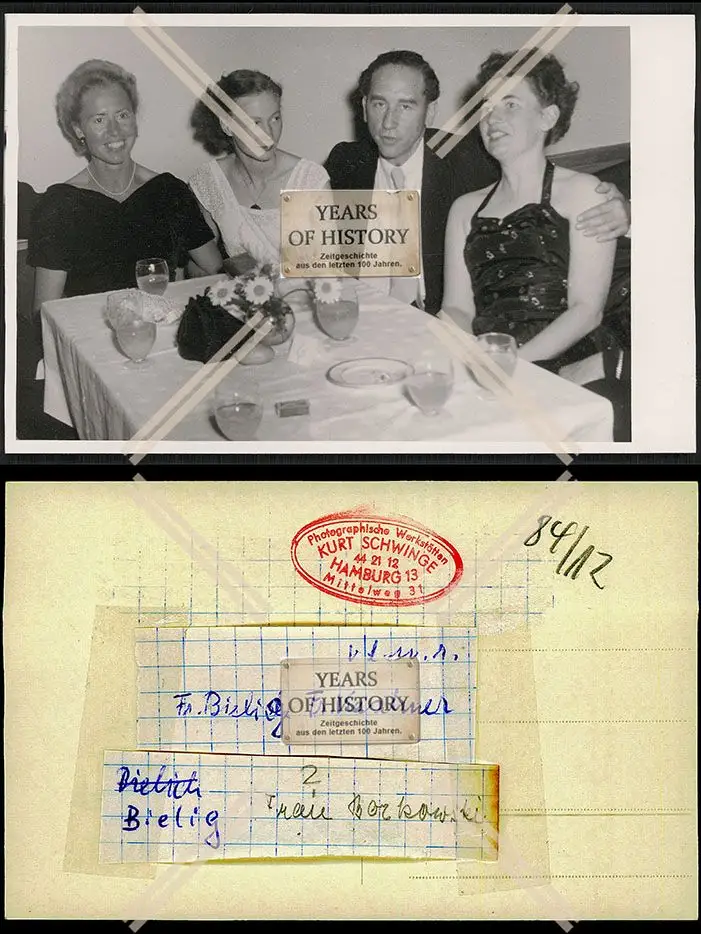 YEARS
OF HISTORY
Zeitgeschichte
aus den letzten 100 Jahren.
84/12
Photographische Werkstätten
KURT SCHWINGE
44 21 12
HAMBURG 13
Mittelweg 31
v. l. n. r.
Fr. Bielig, Fr.
YEARS
OF HISTORY
Zeitgeschichte
aus den letzten 100 Jahren.
2
Bielich
Frau Borkowski
Bielig